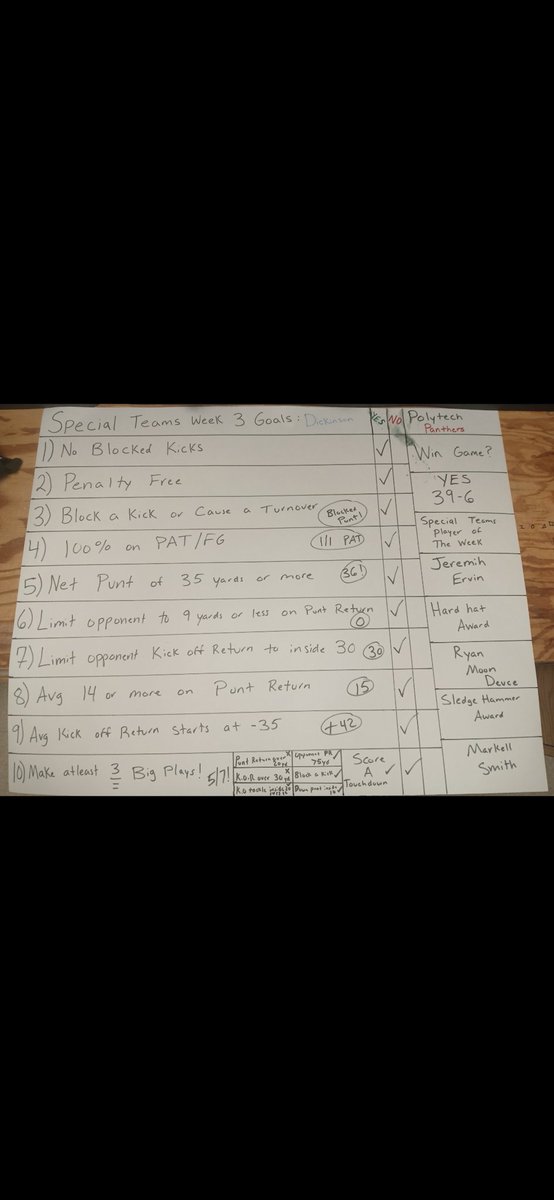 Special Teams Week 3 Goals: Dickinson
YES NO
1) No Blocked Kicks
2) Penalty Free
3) Block a Kick or Cause a Turnover Blocked Punt!
4) 100% on PAT/FG 1/1 PAT
5) Net Punt of 35 yards or more 36!
6) Limit opponent to 9 yards or less on Punt Return 0
7) Limit opponent Kick off Return to inside 30 30
8) Avg 14 or more on Punt Return 15
9) Avg Kick off Return starts at -35 +42
10) Make atleast 3 Big Plays! 5/7!
Punt Return over
K.O.R over 30 yd
K.O tackle inside
75yd
Block a Kick
Down punt inside
Score
A
Touchdown
Polytech
Panthers
Win Game?
YES
39-6
Special Teams
player of
The Week
Jeremih
Ervin
Hard hat
Award
Ryan
Moon
Deuce
Sledge Hammer
Award
Markell
Smith